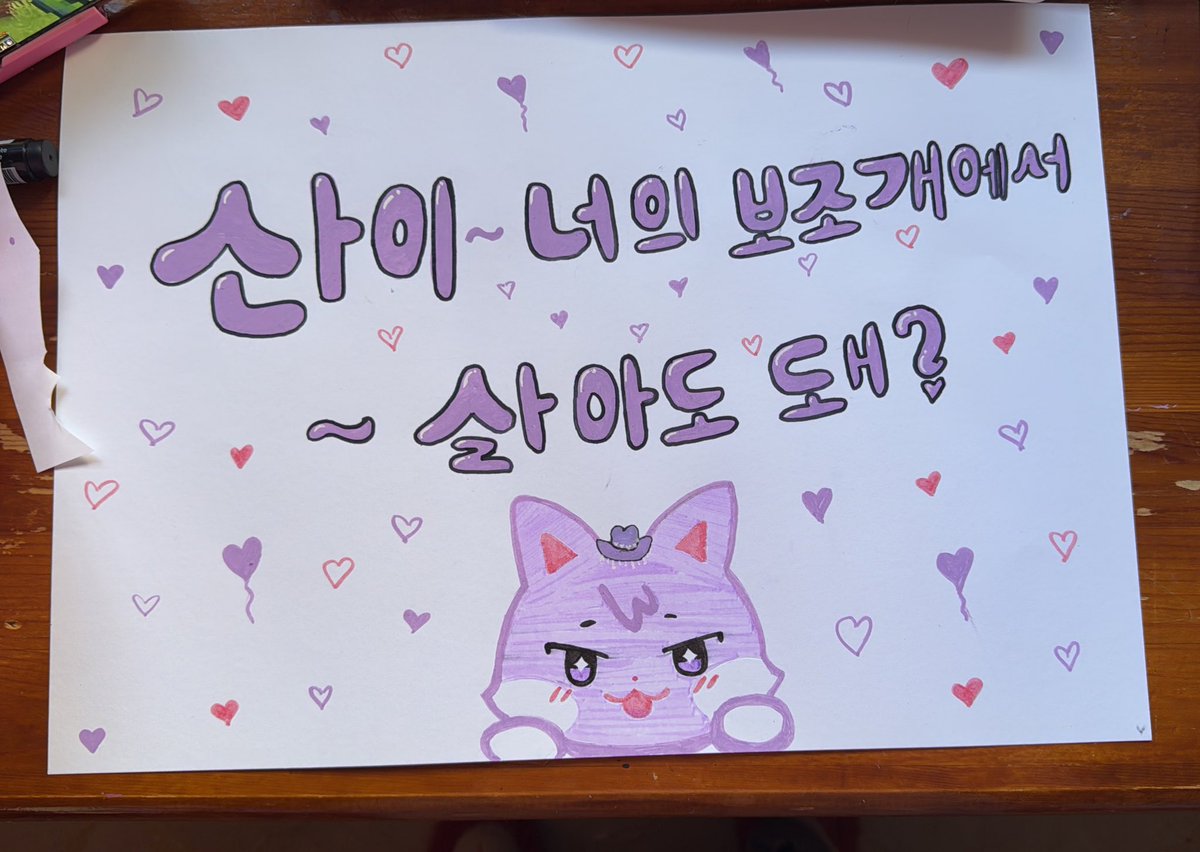 산이~ 너의 보조개에서
~ 살아도 돼?
W